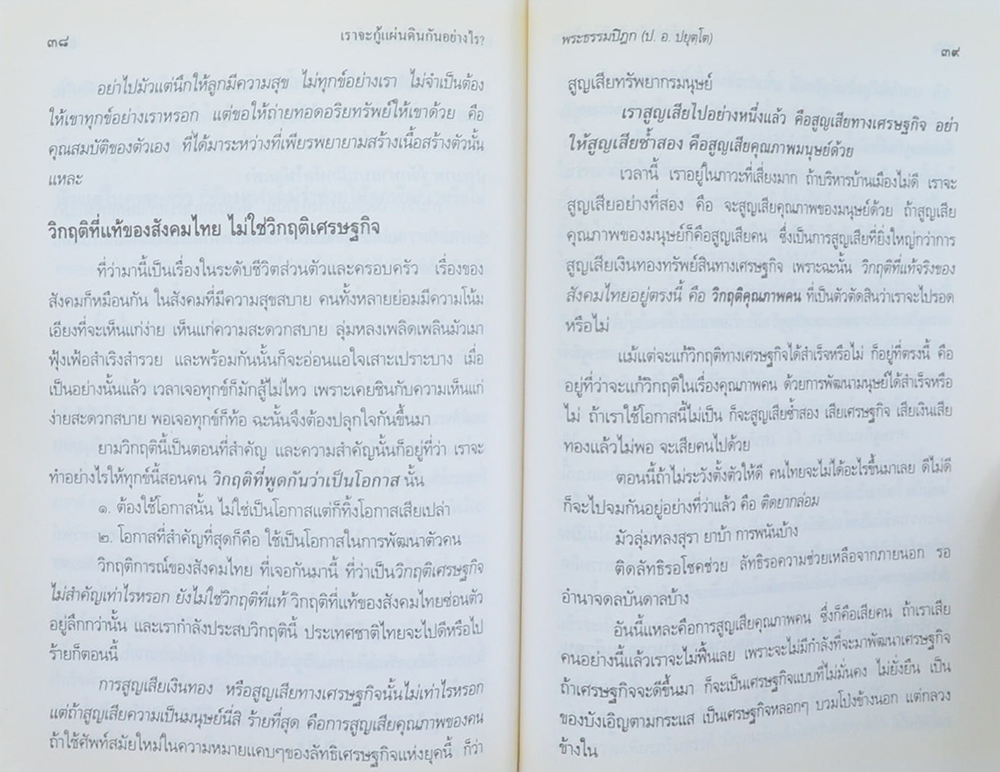 ๓๘
เราจะกู้แผ่นดินกันอย่างไร?
อย่าไปมัวแต่นึกให้ลูกมีความสุข ไม่ทุกข์อย่างเรา ไม่จำเป็นต้อง
ให้เขาทุกข์อย่างเราหรอก แต่ขอให้ถ่ายทอดอริยทรัพย์ให้เขาด้วย คือ
คุณสมบัติของตัวเอง ที่ได้มาระหว่างที่เพียรพยายามสร้างเนื้อสร้างตัวนั้น
แหละ
วิกฤติที่แท้ของสังคมไทย ไม่ใช่วิกฤติเศรษฐกิจ
ที่ว่ามานี้เป็นเรื่องในระดับชีวิตส่วนตัวและครอบครัว เรื่องของ
สังคมก็เหมือนกัน ในสังคมที่มีความสุขสบาย คนทั้งหลายย่อมมีความโน้ม
เอียงที่จะเห็นแก่ง่าย เห็นแก่ความสะดวกสบาย ลุ่มหลงเพลิดเพลินมัวเมา
ฟุ้งเฟ้อสำเริงสำรวย และพร้อมกันนั้นก็จะอ่อนแอใจเสาะเปราะบาง เมื่อ
เป็นอย่างนั้นแล้ว เวลาเจอทุกข์ก็มักสู้ไม่ไหว เพราะเคยชินกับความเห็นแก่
ง่ายสะดวกสบาย พอเจอทุกข์ก็ท้อ ฉะนั้นจึงต้องปลุกใจกันขึ้นมา
ยามวิกฤตินี้เป็นตอนที่สำคัญ และความสำคัญนั้นก็อยู่ที่ว่า เราจะ
ทำอย่างไรให้ทุกข์นี้สอนคน วิกฤติที่พูดกันว่าเป็นโอกาส นั้น
๑. ต้องใช้โอกาสนั้น ไม่ใช่เป็นโอกาสแต่ก็ทิ้งโอกาสเสียเปล่า
๒. โอกาสที่สำคัญที่สุดก็คือ ใช้เป็นโอกาสในการพัฒนาตัวคน
วิกฤติการณ์ของสังคมไทย ที่เจอกันมานี้ ที่ว่าเป็นวิกฤติเศรษฐกิจ
ไม่สำคัญเท่าไรหรอก ยังไม่ใช่วิกฤติที่แท้ วิกฤติที่แท้ของสังคมไทยซ่อนตัว
อยู่ลึกกว่านั้น และเรากำลังประสบวิกฤตินี้ ประเทศชาติไทยจะไปดีหรือไป
ร้ายก็ตอนนี้
การสูญเสียเงินทอง หรือสูญเสียทางเศรษฐกิจนั้นไม่เท่าไรหรอก
แต่ถ้าสูญเสียความเป็นมนุษย์นี่สิ ร้ายที่สุด คือการสูญเสียคุณภาพของคน
ถ้าใช้ศัพท์สมัยใหม่ในความหมายแคบๆของลัทธิเศรษฐกิจแห่งยุคนี้ ก็ว่า
พระธรรมปิฎก (ป. อ. ปยุตฺโต)
๓๙
สูญเสียทรัพยากรมนุษย์
เราสูญเสียไปอย่างหนึ่งแล้ว คือสูญเสียทางเศรษฐกิจ อย่า
ให้สูญเสียซ้ำสอง คือสูญเสียคุณภาพมนุษย์ด้วย
เวลานี้ เราอยู่ในภาวะที่เสี่ยงมาก ถ้าบริหารบ้านเมืองไม่ดี เราจะ
สูญเสียอย่างที่สอง คือ จะสูญเสียคุณภาพของมนุษย์ด้วย ถ้าสูญเสีย
คุณภาพของมนุษย์ก็คือสูญเสียคน ซึ่งเป็นการสูญเสียที่ยิ่งใหญ่กว่าการ
สูญเสียเงินทองทรัพย์สินทางเศรษฐกิจ เพราะฉะนั้น วิกฤติที่แท้จริงของ
สังคมไทยอยู่ตรงนี้ คือ วิกฤติคุณภาพคน ที่เป็นตัวตัดสินว่าเราจะไปรอด
หรือไม่
แม้แต่จะแก้วิกฤติทางเศรษฐกิจได้สำเร็จหรือไม่ ก็อยู่ที่ตรงนี้ คือ
อยู่ที่ว่าจะแก้วิกฤติในเรื่องคุณภาพคน ด้วยการพัฒนามนุษย์ได้สำเร็จหรือ
ไม่ ถ้าเราใช้โอกาสนี้ไม่เป็น ก็จะสูญเสียซ้ำสอง เสียเศรษฐกิจ เสียเงินเสีย
ทองแล้วไม่พอ จะเสียคนไปด้วย
ตอนนี้ถ้าไม่ระวังตั้งตัวให้ดี คนไทยจะไม่ได้อะไรขึ้นมาเลย ดีไม่ดี
ก็จะไปจมกันอยู่อย่างที่ว่าแล้ว คือ ติดยากล่อม
มัวลุ่มหลงสุรา ยาบ้า การพนันบ้าง
ติดลัทธิรอโชคช่วย ลัทธิรอความช่วยเหลือจากภายนอก รอ
อำนาจดลบันดาลบ้าง
อันนี้แหละคือการสูญเสียคุณภาพคน ซึ่งก็คือเสียคน ถ้าเราเสีย
คนอย่างนี้แล้วเราจะไม่ฟื้นเลย เพราะจะไม่มีกำลังที่จะมาพัฒนาเศรษฐกิจ
ถ้าเศรษฐกิจจะดีขึ้นมา ก็จะเป็นเศรษฐกิจแบบที่ไม่มั่นคง ไม่ยั่งยืน เป็น
ของบังเอิญตามกระแส เป็นเศรษฐกิจหลอกๆ บวมโป่งข้างนอก แต่กลวง
ข้างใน